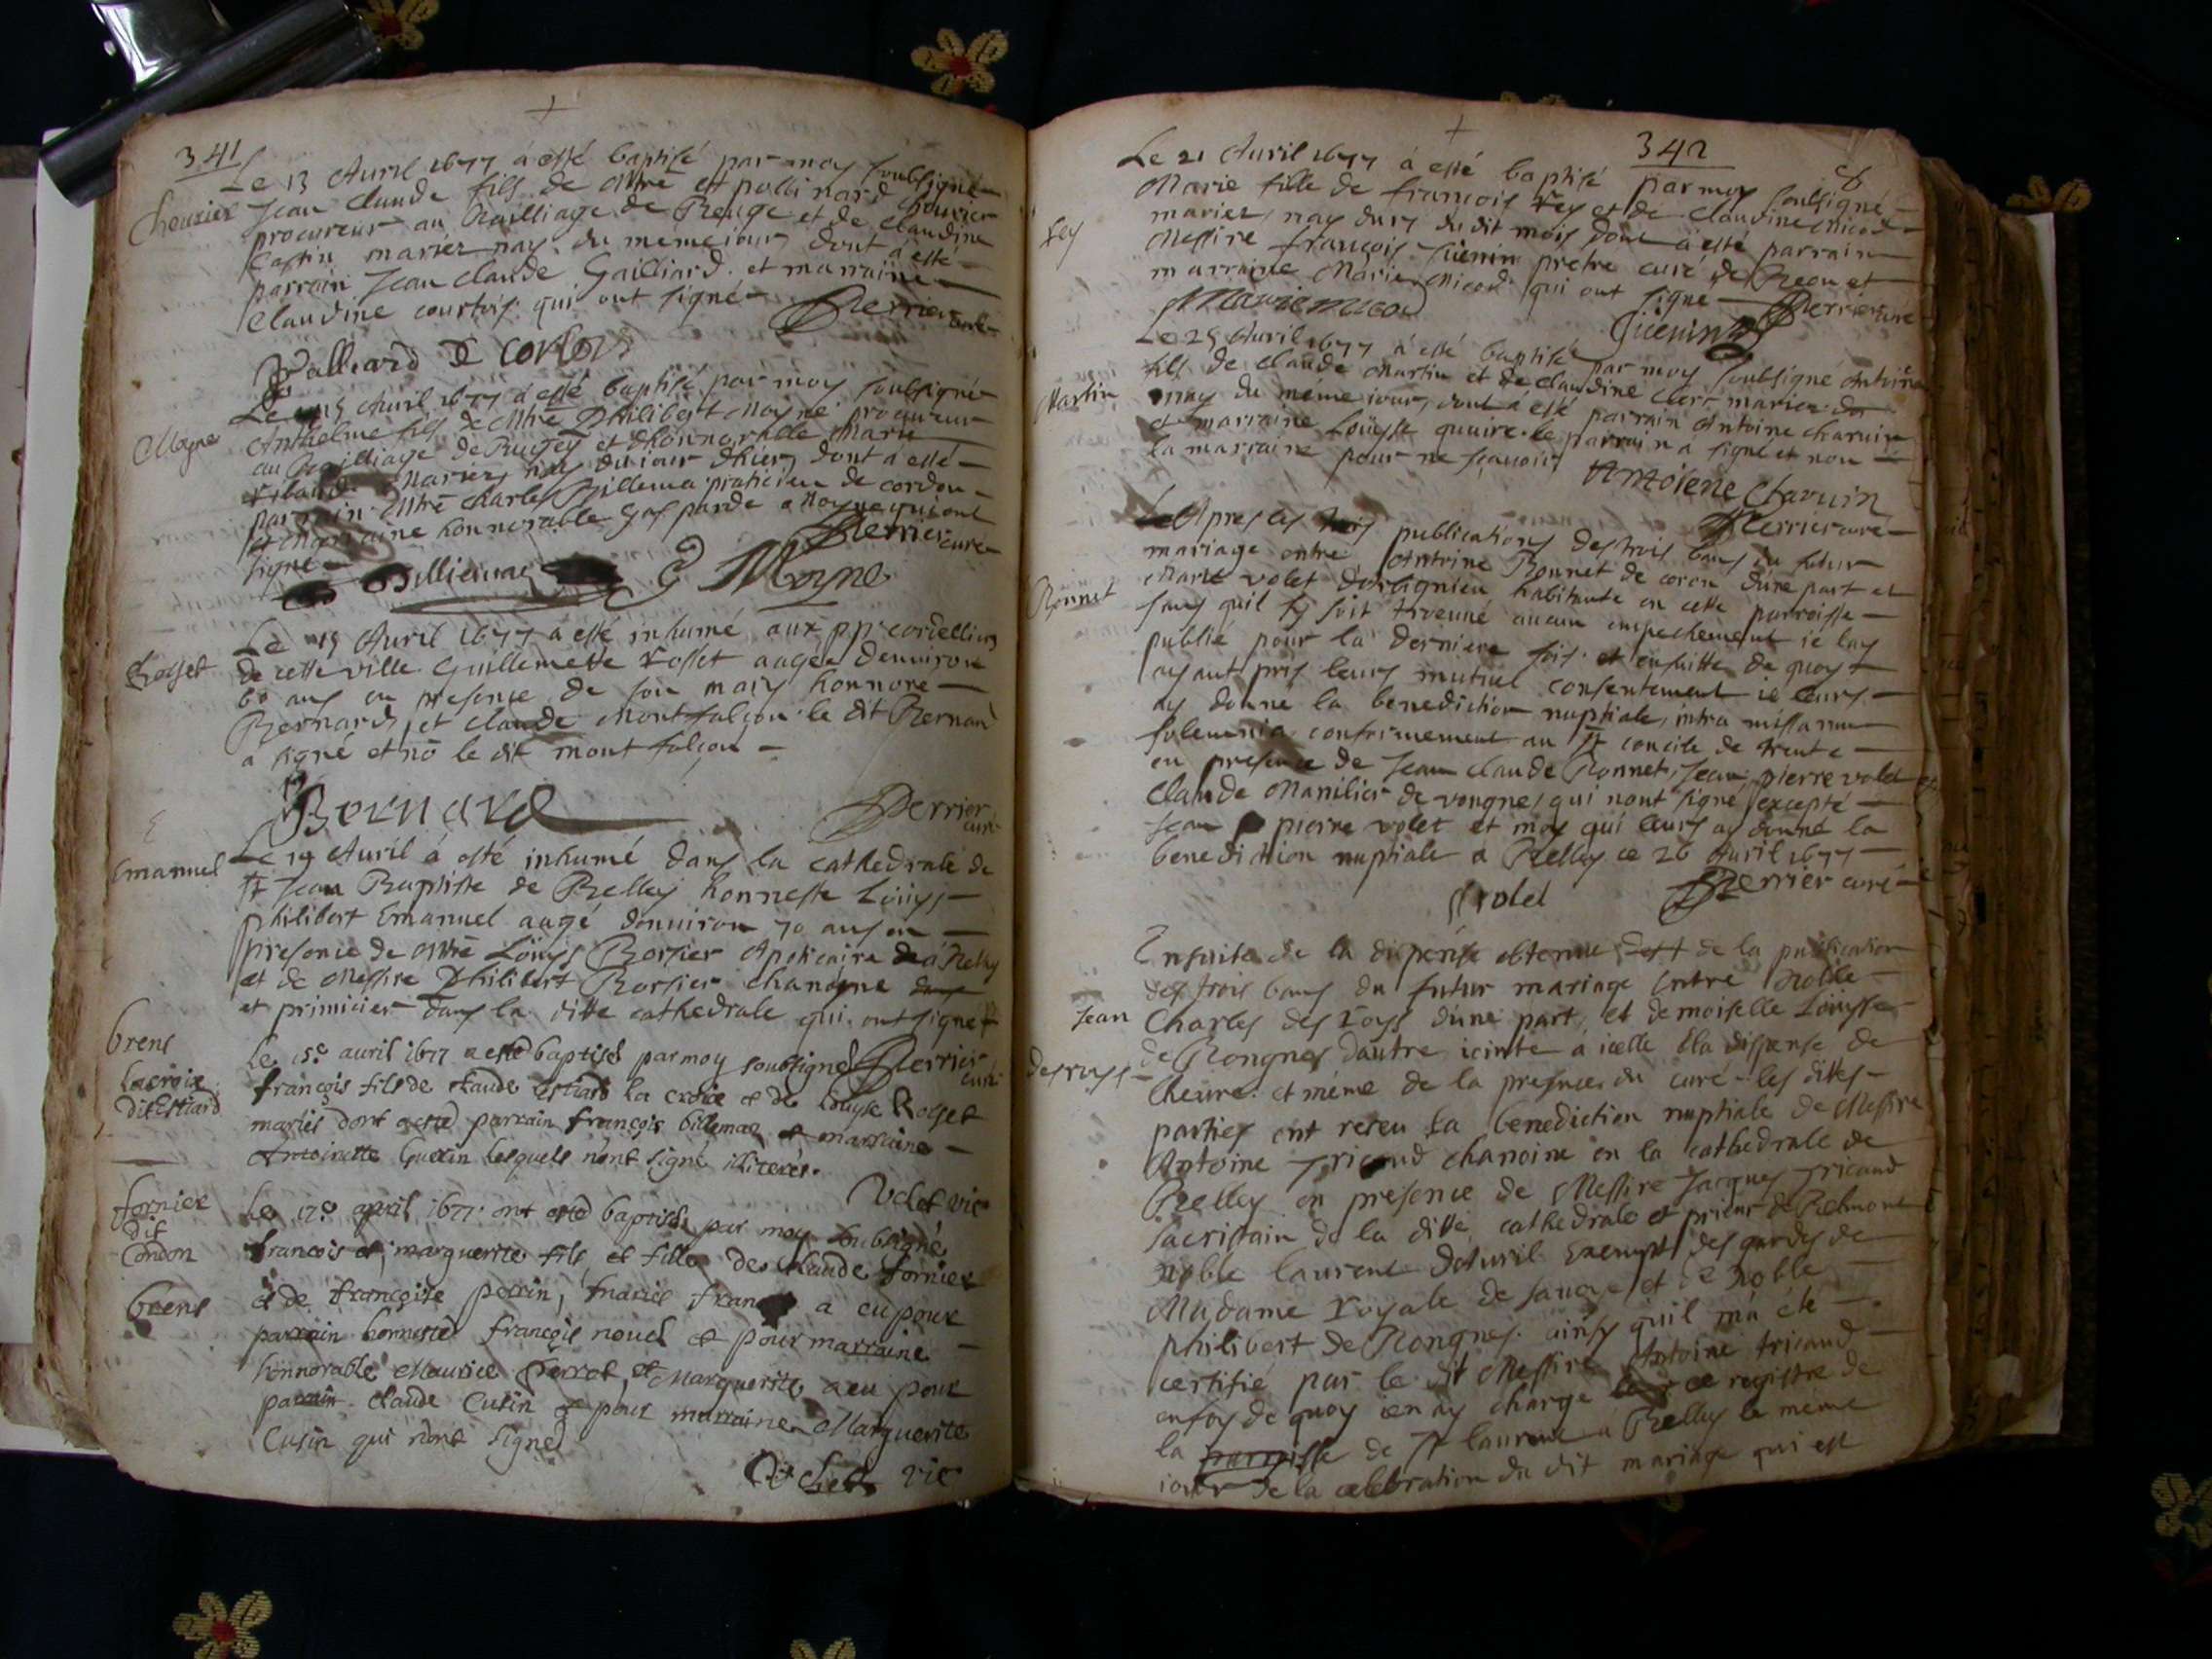 341
Le 13 Auril 1677 à esté baptisé par moy soubsigné
Cheurier
Jean claude fils de Mtre et pollinard Cheurier
procureur au Bailliage de Beuge et de claudine
Castin mariez nay du meme iour, dont à esté
parrain Jean claude Gailliard et marraine
Claudine courtois qui ont signé
Perrier curé
Le 15 Auril 1677 à esté baptisé par moy soubsigné
Moyne
Anthelme fils de Mtre Philibert Moyne procureur
au Bailliage de Bugey et d'honnorable Marie
mariez nay du iour dhier, dont à esté
parrain Mtre Charles Billiema praticien de cordon
et marraine honnorable Gasparde Moyne qui ont
signé
Perrier curé
Billiemaz G Moyne
Le 15 Auril 1677 à esté inhumé aux pp cordelliers
Rosset
de cette ville Guillemette rosset aagée denuiron
60 ans en presence de son mary honnoré
Bernard, et claude Montfalcon le dit Bernard
a signé et nō le dit montfalcon
Bernard
Perrier curé
Emanuel
Le 19 Auril à esté inhumé dans la cathedrale de
St Jean Baptiste de Belley honneste Louys
philibert Emanuel aagé denuiron 70 ans en
presence de Mtre Louys Borsier Apoticaire de à Belley
et de Messire Philibert Borsier chanoyne dans
et primicier dans la ditte cathedrale qui ont signé
Perrier curé
brens
Le 15e auril 1677 a esté baptisé par moy soubsigné
Lacroix
dit Estiard
françois fils de claude estiard la croix et de Louyse Rosset
mariés dont a esté parrain françois billemaz et marraine
Antoinette Guerin lesquels n'ont signé illiterés.
Volet vic
fornier
dit
Condon
Le 17e april 1677 ont esté baptisés par moy soubsigné
francois et marguerite fils et fille de claude fornier
brens
et de françoise perrin, mariés françois a eu pour
parrain honnesté françois nouel et pour marraine
honnorable Maurice perrot, et Marguerite a eu pour
parrain claude Cusin et pour marraine Marguerite
Cusin qui n'ont signé
Volet vic
342
Le 21 Auril 1677 à esté baptisé par moy soubsigné
Rey
Marie fille de francois Rey et de Claudine Nicod
mariez, nay du dit mois dont à esté parrain
Messire françois Guenin pretre curé de et
marraine Marie Nicod qui ont signé
Marie nicod
Guenin
Perrier curé
Le 25 Auril 1677 à esté baptisé par moy soubsigné Antoine
Martin
fils de Claude Martin et de claudine Clerc mariez
nay du même iour, dont à esté parrain Antoine charuin
et marraine Louyse le parrain a signé et non
la marraine pour ne sçauoir
Antoiene Charuin
Perrier curé
Apres les trois publications des trois bans du futur
mariage entre Antoine Bonnet de coron d'une part et
Bonnet
Marie volet habitante en cette parroisse
sans quil sy soit trouué aucun empechement ie lay
publié pour la derniere fois et ensuitte de quoy
ayant pris leurs mutuel consentement ie leurs
ay donné la benediction nuptiale, intra missarum
solemnia conformement au St concile de trente
en presence de Jean claude Bonnet, Jean pierre volet et
Claude Manilier de vongnes, qui nont signé excepté
Jean pierre volet et moy qui leurs ay donné la
benediction nuptiale à Belley ce 26 Auril 1677
volet
Perrier curé
Ensuite de la dispense obtenue de la publication
des trois bans du futur mariage entre Noble
Jean
Charles des roys d'une part, et demoiselle Louyse
desroys
de Rongnes dautre, iointe à icelle la dispense de
lheure et même de la presence du curé les dittes
parties ont receu la benediction nuptiale de Messire
Antoine Tricaud chanoine en la cathedrale de
Belley en presence de Messire Jacques Tricaud
sacristain de la ditte cathedrale et prieur de Belmont
noble laurent exempt des gardes de
Madame royale de sauoye et de noble
philibert de Rongnes. ainsy quil m'a été
certifié par le dit Messire Antoine tricaud
en foy de quoy ien ay chargé ce registre de
la parroisse de St laurent à Belley le même
iour de la celebration du dit mariage qui est